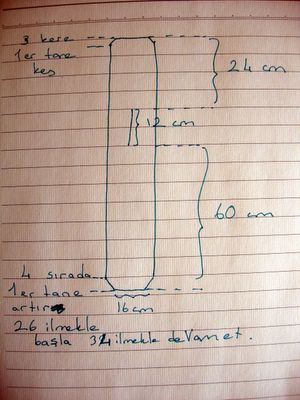 3 kere
1er tane
kes
24 cm
12 cm
60 cm
4 sırada
1er tane
artır
16 cm
26 ilmekle
başla 34 ilmekle devam et.